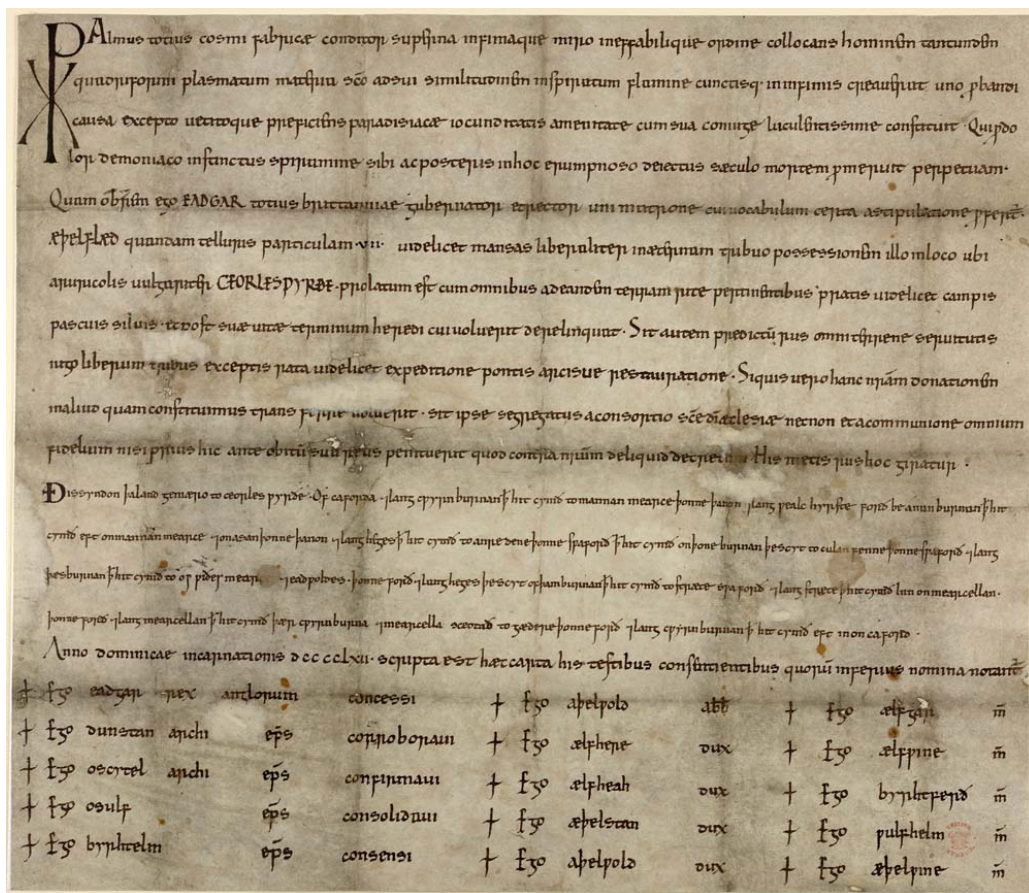 Almus totius cosmi fabricę conditor superna infimaque miro ineffabilique ordine collocans hominem tantundem
quadriformi plasmatum materia sc̄o ad sui similitudinem inspiratum flamine cunctisq· in infimis creauerat uno ꝓbandi
causa excepto uetitoque preficiens paradisiacæ iocunditatis amenitate cum sua coniuge luculentissime constituit · Qui pdo
lor demoniaco instinctus spiramine sibi ac posteris in hoc erumpnoso deiectus sæculo mortem ꝓmeruit perpetuam·
Quam ob rem ego EADGAR totius brittanniæ gubernator et rector uni matrone cui uocabulum certa astipulatione ꝓfert᷑
æþelflæd quandam telluris particulam ·vii· uidelicet mansas liberaliter in æternam tribuo possessionem illo in loco ubi
a ruricolis uulgariter CEORLESǷYRÐE · prolatum est cum omnibus ad eandem terram rite pertinentibus pratis uidelicet campis
pascuis siluis · et post suæ uitæ terminum heredi cui uoluerit derelinquat · Sit autem predictū rus omni terrene seruitutis
iugo liberum tribus exceptis rata uidelicet expeditione pontis arcisue restauratione · Siquis uero hanc nr̄am donationem
in aliud quam constituimus transferre uoluerit · sit ipse segregatus a consortio sc̄e dī æclesiæ necnon et a communione omnium
fidelium nisi prius hic ante obitū sui reus penituerit quod contra nr̄um deliquid decretum His metis rus hoc giratur ·
Ðis syndon þa land gemæro to ceorles ƿyrðe · Of caforda · 7lang cƿyrnburnan ꝥ hit cymð to mannan mearce þonne þanon 7lang ƿealc hyrste ford be anun burnan ꝥ hit
cymð eft on mannan mearce
þonne forð 7lang mearcellan ꝥ hit cymð þær cƿyrnburna 7 mearcella sceotað to gædere þonne forð 7lang cƿyrnburnan ꝥ hit cymð eft in on caford ·
Anno dominicae incarnationis dcccclxii · scripta est hæc carta his testibus consentientibus quorū inferius nomina notant᷑
+ Ego eadgar rex anglorum concessi + Ego aþelƿold abb̄ + Ego ælfgar m̄
+ Ego dunstan archi ep̄s corroboraui + Ego ælfhere dux + Ego ælfƿine m̄
+ Ego oscytel archi ep̄s confirmaui + Ego ælfheah dux + Ego byrhtferð m̄
+ Ego osulf ep̄s consolidaui + Ego æþelstan dux + Ego ƿulfhelm m̄
+ Ego byrhtelm ep̄s consensi + Ego aþelƿold dux + Ego æþelƿine m̄